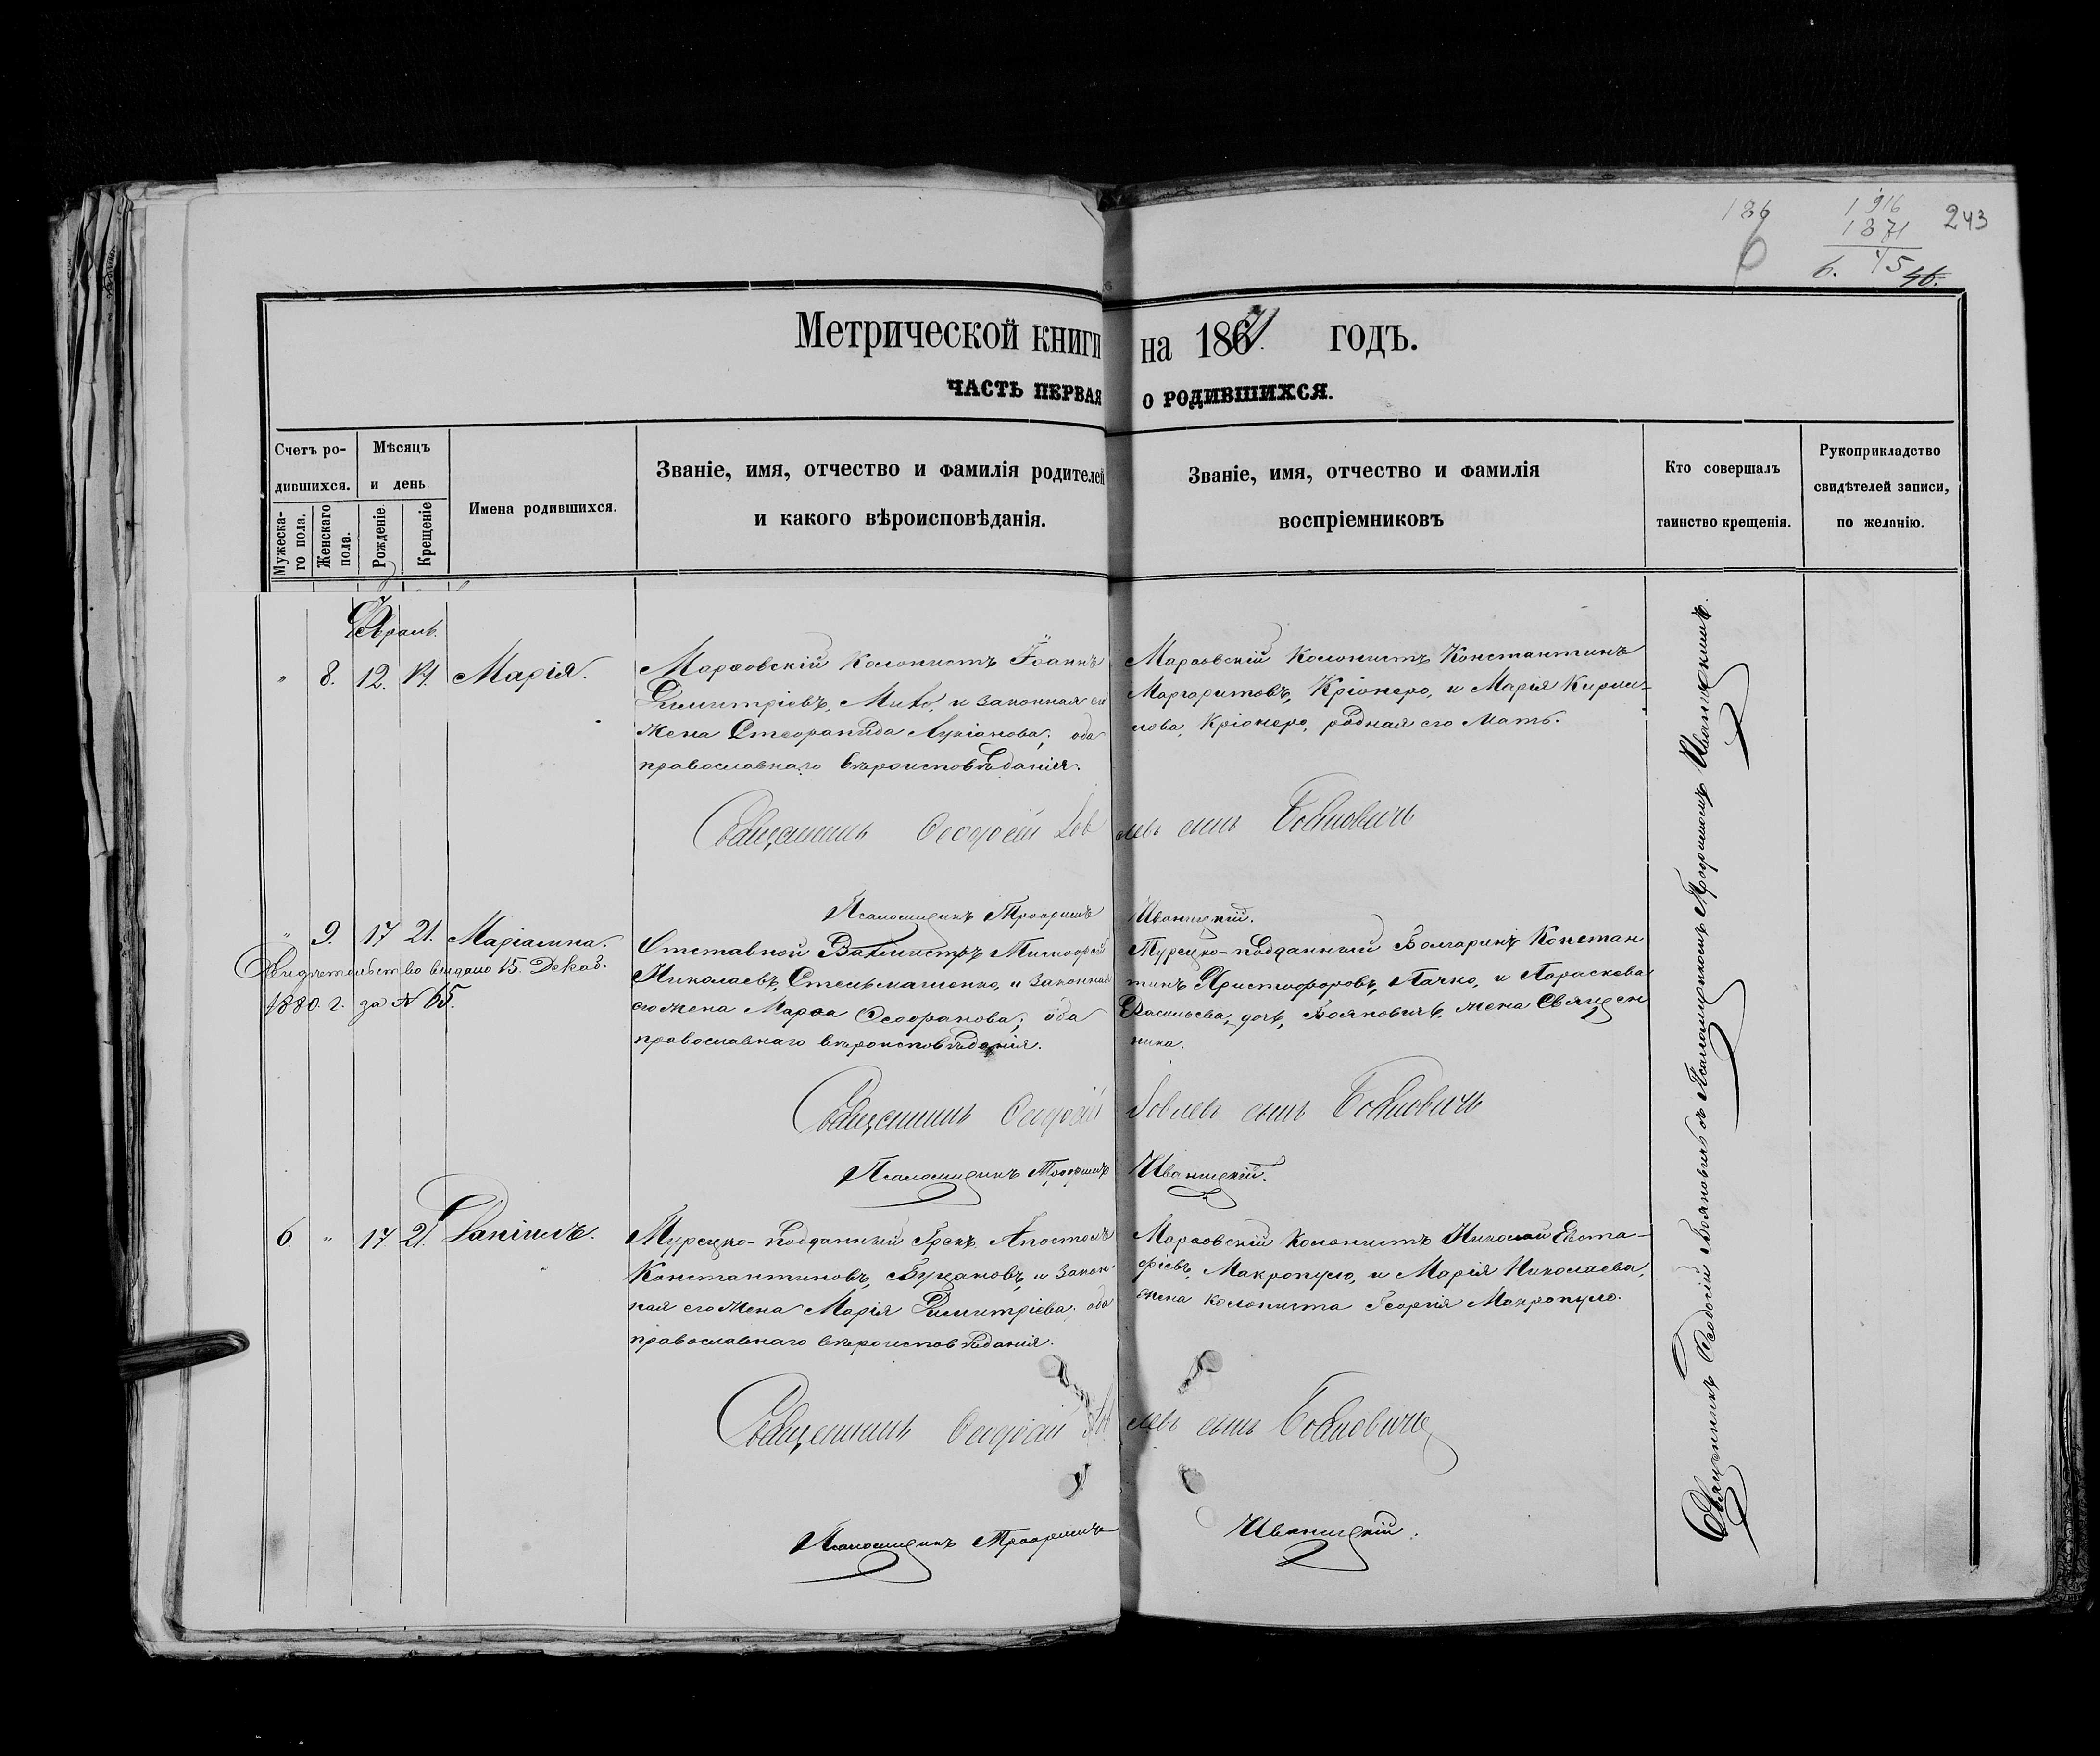 186
1916
1871
45
6.
46.
243
Метрической книги на 1871. годъ.
ЧАСТЬ ПЕРВАЯ О РОДИВШИХСЯ.
Счетъ ро-
дившихся.
Мѣсяцъ
и день
Мужеска-
го пола.
Женскаго
пола.
Рожденіе.
Крещеніе
Имена родившихся.
Званіе, имя, отчество и фамилія родителей
и какого вѣроисповѣданія.
Званіе, имя, отчество и фамилія
воспріемниковъ
Кто совершалъ
таинство крещенія.
Рукоприкладство
свидѣтелей записи,
по желанію.
Февраль.
" 8. 12. 14. Марія.
Марѳовскій колонистъ Іоаннъ
Димитріевъ, и законная его
жена Лукіанова; оба
православнаго вѣроисповѣданія.
Марѳовскій колонистъ Константинъ
Маргаритовъ, Кріонеро, и Марія Кирил-
лова, Кріонеро, родная его мать.
Священникъ Ѳеодосій Іовлевъ сынъ Бояновичь
Псаломщикъ Трофимъ Иваницкій.
" 9. 17 21. Маріамна.
Свидѣтельство выдано 15. Декаб.
1880. г. за № 65.
Отставной Вахмистръ Тимофей
Николаевъ, Стельмашенко, и законная
его жена Марѳа Ѳеофанова; оба
православнаго вѣроисповѣданія.
Турецко-подданный Болгаринъ Констан
тинъ Христофоровъ, Пачко, и Параскева
Васильева, дочь, Бояновичъ, жена Священ
ника.
Священникъ Ѳеодосій Іовлевъ сынъ Бояновичь
Псаломщикъ Трофимъ Иваницкій.
6. " 17 21. Даніилъ.
Турецко-подданный Грекъ Апостолъ
Константиновъ, и закон-
ная его жена Марія Димитріева; оба
православнаго вѣроисповѣданія.
Марѳовскій колонистъ Николай Евста-
фіевъ, Макропуло, и Марія Николаева,
жена колониста Георгія Макропуло.
Священникъ Ѳеодосій Іовлевъ сынъ Бояновичь
Псаломщикъ Трофимъ Иваницкій.
Священникъ Ѳеодосій Бояновичъ съ Псаломщикомъ Трофимомъ Иваницкимъ.